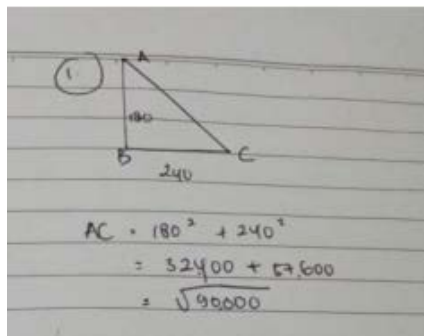 1.
A
180
B
C
240
AC = 180² + 240²
= 32,400 + 57,600
= √90,000